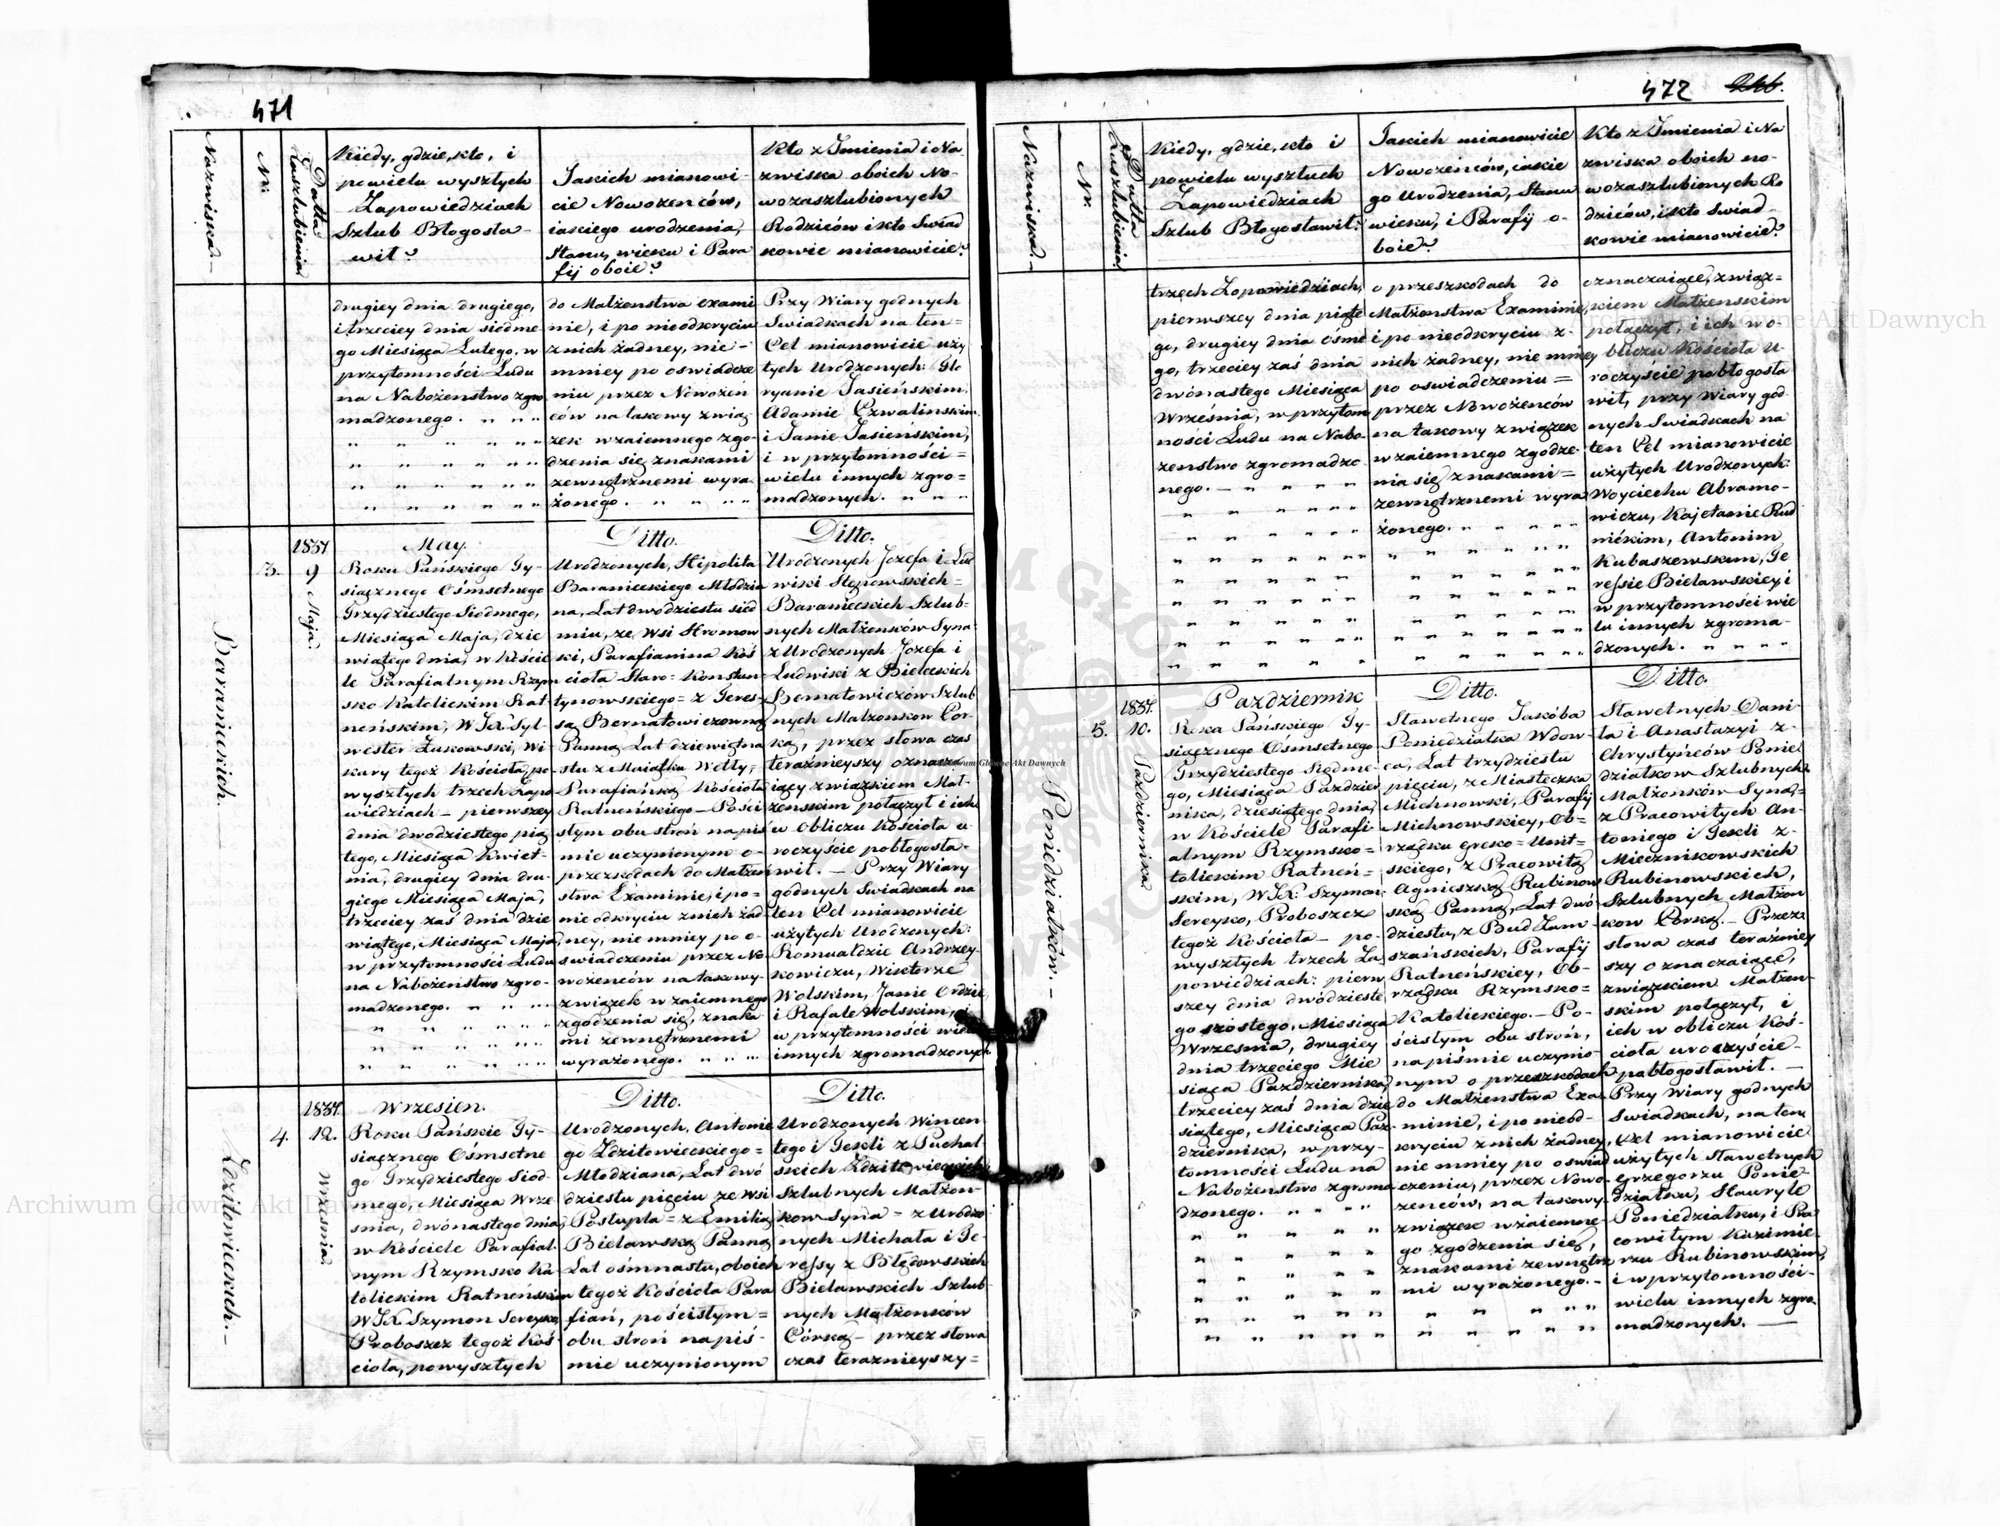 471
Nazwiska.—
Nr.
Datta Zaszlubienia
Kiedy, gdzie, kto, i
powielu wyszłych
Zapowiedziach
Szlub Błogosła-
wił?
Jakich mianowi-
cie Nowożeńców,
iakiego urodzenia,
Stanu, wieku i Para
fij oboie?
Kto z Imienia i Na-
zwiska oboich No-
wozaszlubionych
Rodziców i kto Swiad
kowie mianowicie?
drugiey dnia drugiego,
i trzeciey dnia siódme
go Miesiąca Lutego, w
przytomności Ludu
na Nabożenstwo zgro
madzonego.
do Małżenstwa exami
nie, i po nieodkryciu
z nich żadney, nie-
mniey po oswiadcze
niu przez Nowożeń
ców na takowy związ
zek wzaiemnego zgo-
dzenia się znakami
zewnętrznemi wyra-
żonego.
Przy Wiary godnych
Swiadkach na ten=
Cel mianowicie uży
tych Urodzonych: Flo
ryanie Jasieńskim,
Adamie Czwalinskim
i Janie Jasieńskim,
i w przytomności=
wielu innych zgro=
madzonych.
Baranieckich.
3.
1837
9 Maja.
May.
Roku Pańskiego Ty-
siącznego Ośmsetnego
Trzydziestego Siodmego,
Miesiąca Maja, dzie
wiątego dnia, w Kościé
le Parafialnym Rzym
sko Katolickim Rat-
neńskim, W JX Syl-
wester Żukowski, Wi
kary tegoż Kościoła, po
wyszłych trzech Zapo
wiedziach — pierwszey
dnia dwodziestego pią
tego, Miesiąca Kwiet-
nia, drugiey dnia dru-
giego Miesiąca Maja,
trzeciey zaś dnia dzie
wiątego, Miesiąca Maja,
w przytomności Ludu
na Nabożeństwo zgro-
madzonego.
Ditto.
Urodzonych, Hipolita
Baranieckiego Młodzia
na, Lat dwodziestu sied
miu, ze Wsi Hromow
ki, Parafianina Koś
cioła Staro=Konstan
tynowskiego= z Teres-
są Bernatowiczowną
Panną Lat dziewiętna
stu z Maiątku Wetły,=
Parafianką Kościoła
Ratneńskiego — Pości
słym obu stroń na piś
mie uczynionym o-
przezkodach do Małżeń
stwa Examinie, i po=
nieodkryciu z nich żad
ney, nie mniey po o-
swiadczeniu przez No-
wożeńców na takowy-
związek wzaiemnego
zgodzenia się, znaka
mi zewnętrznemi
wyrażonego.
Ditto.
Urodzonych Jozefa i Lud
wiki Stępowskich=
Baranieckich Szlub-
nych Małżenków Syna-
z Urodzonych Jozefa i
Ludwiki z Bieleckich
Bernatowiczów Szlub
nych Małżonkow Cór-
ką, przez słowa czas
teraźnieyszy oznacza-
iący związkiem Mał-
żenskim połączył i ich
w Obliczu Kościoła u-
roczyście pobłogosła-
wił. — Przy Wiary
godnych Swiadkach na
ten Cel mianowicie
użytych Urodzonych:
Romualdzie Andrzey-
kowiczu, Wiktorze
Wolskim, Janie Ordzie,
i Rafale Wolskim, i
w przytomności wielu
innych zgromadzonych
Zdzitowieckich.—
4.
1837.
12.
Wrzesnia
Wrzesien.
Roku Pańskie Ty-
siącznego Ośmsetne
go Trzydziestego Siod-
mego, Miesiąca Wrze
śnia, dwónastego dnia,
w Kościele Parafial-
nym Rzymsko Ka-
tolickim Ratneńskim
W JX Szymon Sereyko,
Proboszcz tegoż Koś-
cioła, powyszłych
Ditto.
Urodzonych, Antonie
go Zdzitowieckiego=
Młodziana, Lat dwó
dziestu pięciu ze Wsi
Postupla= z Emilią
Bielawską Panną
Lat ośmnastu, oboich
tegoż Kościoła Para
fian, po ścisłym=
obu stroń na piś-
mie uczynionym
Ditto.
Urodzonych Wincen-
tego i Tekli z Puchal
skich Zdzitowieckich
Szlubnych Małżon-
kow Syna= z Urodzo
nych Michała i Te-
ressy z Błędowskich
Bielawskich Szlub
nych Małżonkow
Córką — przez słowa
czas teraznieyszy=
472
Nazwiska.—
Nr.
Datta Zaszlubienia
Kiedy, gdzie, kto i
powielu wyszłuch
Zapowiedziach
Szlub Błogosławił?
Jakich mianowicie
Nowożeńców, iakie
go Urodzenia, Stanu
wieku, i Parafij o-
boie?
Kto z Imienia i Na
zwiska oboich no-
wozaszlubionych Ro
dziców, i kto Swiad-
kowie mianowicie?
trzech Zapowiedziach,
pierwszey dnia piąte
go, drugiey dnia ósme
go, trzeciey zaś dnia
dwónastego Miesiąca
Września, w przytom
ności Ludu na Nabo-
żenstwo zgromadzo
nego.—
o przeszkodach do
Małżenstwa Examinie,
i po nieodkryciu z-
nich żadney, nie mniey
po oswiadczeniu=
przez Nowożeńców
na takowy związek
wzaiemnego zgodze-
nia się znakami=
zewnętrznemi wyra
żonego.
oznaczaiące, związ-
kiem Małżenskim
połączył, i ich w o-
bliczu Kościoła u-
roczyscie pobłogosła
wił, przy Wiary god-
nych Swiadkach na
ten Cel mianowicie
użytych Urodzonych:
Woyciechu Abramo-
wiczu, Kajetanie Rud
nickim, Antonim
Kubaszewskim, Te
ressie Bielawskiey i
w przytomności wie
lu innych zgroma-
dzonych.
Poniedziałków.—
5.
1837.
10.
Pazdziernika
Pazdziernik
Roku Pańskiego Ty-
siącznego Osmsetnego
Trzydziestego Siodme-
go, Miesiąca Pazdzier
nika, dziesiątego dnia,
w Kościele Parafi-
alnym Rzymsko=
tolickim Ratneń=
skim, W JX: Szymon
Sereyko, Proboszcz
tegoż Kościoła — po-
wyszłych trzech Za
powiedziach: pierw
szey dnia dwódzieste
go szostego, Miesiąca
Wrzesnia, drugiey
dnia trzeciego Mie
siąca Pazdziernika,
trzeciey zaś dnia dzie
siątego, Miesiąca Paz-
dziernika, w przy-
tomności Ludu na
Nabożenstwo zgroma
dzonego.
Ditto.
Sławetnego Jakóba
Poniedziałka Wdow-
ca, Lat trzydziestu
pięciu, ze Miasteczka
Michnowki, Parafij
Michnowskiey, Ob=
rządku Greko=Unit=
skiego, z Pracowitą
Agnieszką Rubinow
ską Panną, Lat dwó
dziestu, z Bud Zam-
szańskich, Parafij
Ratneńskiey, Ob-
rządku Rzymsko=
Katolickiego.— Po-
ścisłym obu stroń,
na piśmie uczynio-
nym o przeszkodach
do Małżenstwa Exa-
minie, i po nieod-
kryciu z nich żadney,
nie mniey po oswiad
czeniu, przez Nowo-
żenców, na takowy
związek wzaiemne-
go zgodzenia się,
znakami zewnętrz
mi wyrażonego.—
Ditto.
Sławetnych Dani-
ła i Anastazyi z-
Chrystyńców Ponie
działkow Szlubnych
Małżonków Syna=
z Pracowitych An-
toniego i Tekli z-
Miecznikowskich
Rubinowskich,
Szlubnych Małżon
kow Córką.— Przez
słowa czas teraźniey
szy oznaczaiące,
związkiem Małżen-
skim połączył, i
ich w obliczu Koś-
cioła uroczyście-
pobłogosławił.—
Przy Wiary godnych
Swiadkach, na ten
Cel mianowicie
użytych Sławetnych
Grzegorzu Ponie-
działku, Hauryle
Poniedziałku, i Pra
cowitym Kazimie-
rzu Rubinowskim,
i w przytomności-
wielu innych zgro-
madzonych.—
Archiwum Główne Akt Dawnych
Archiwum Główne Akt Dawnych
Archiwum Główne Akt Dawnych